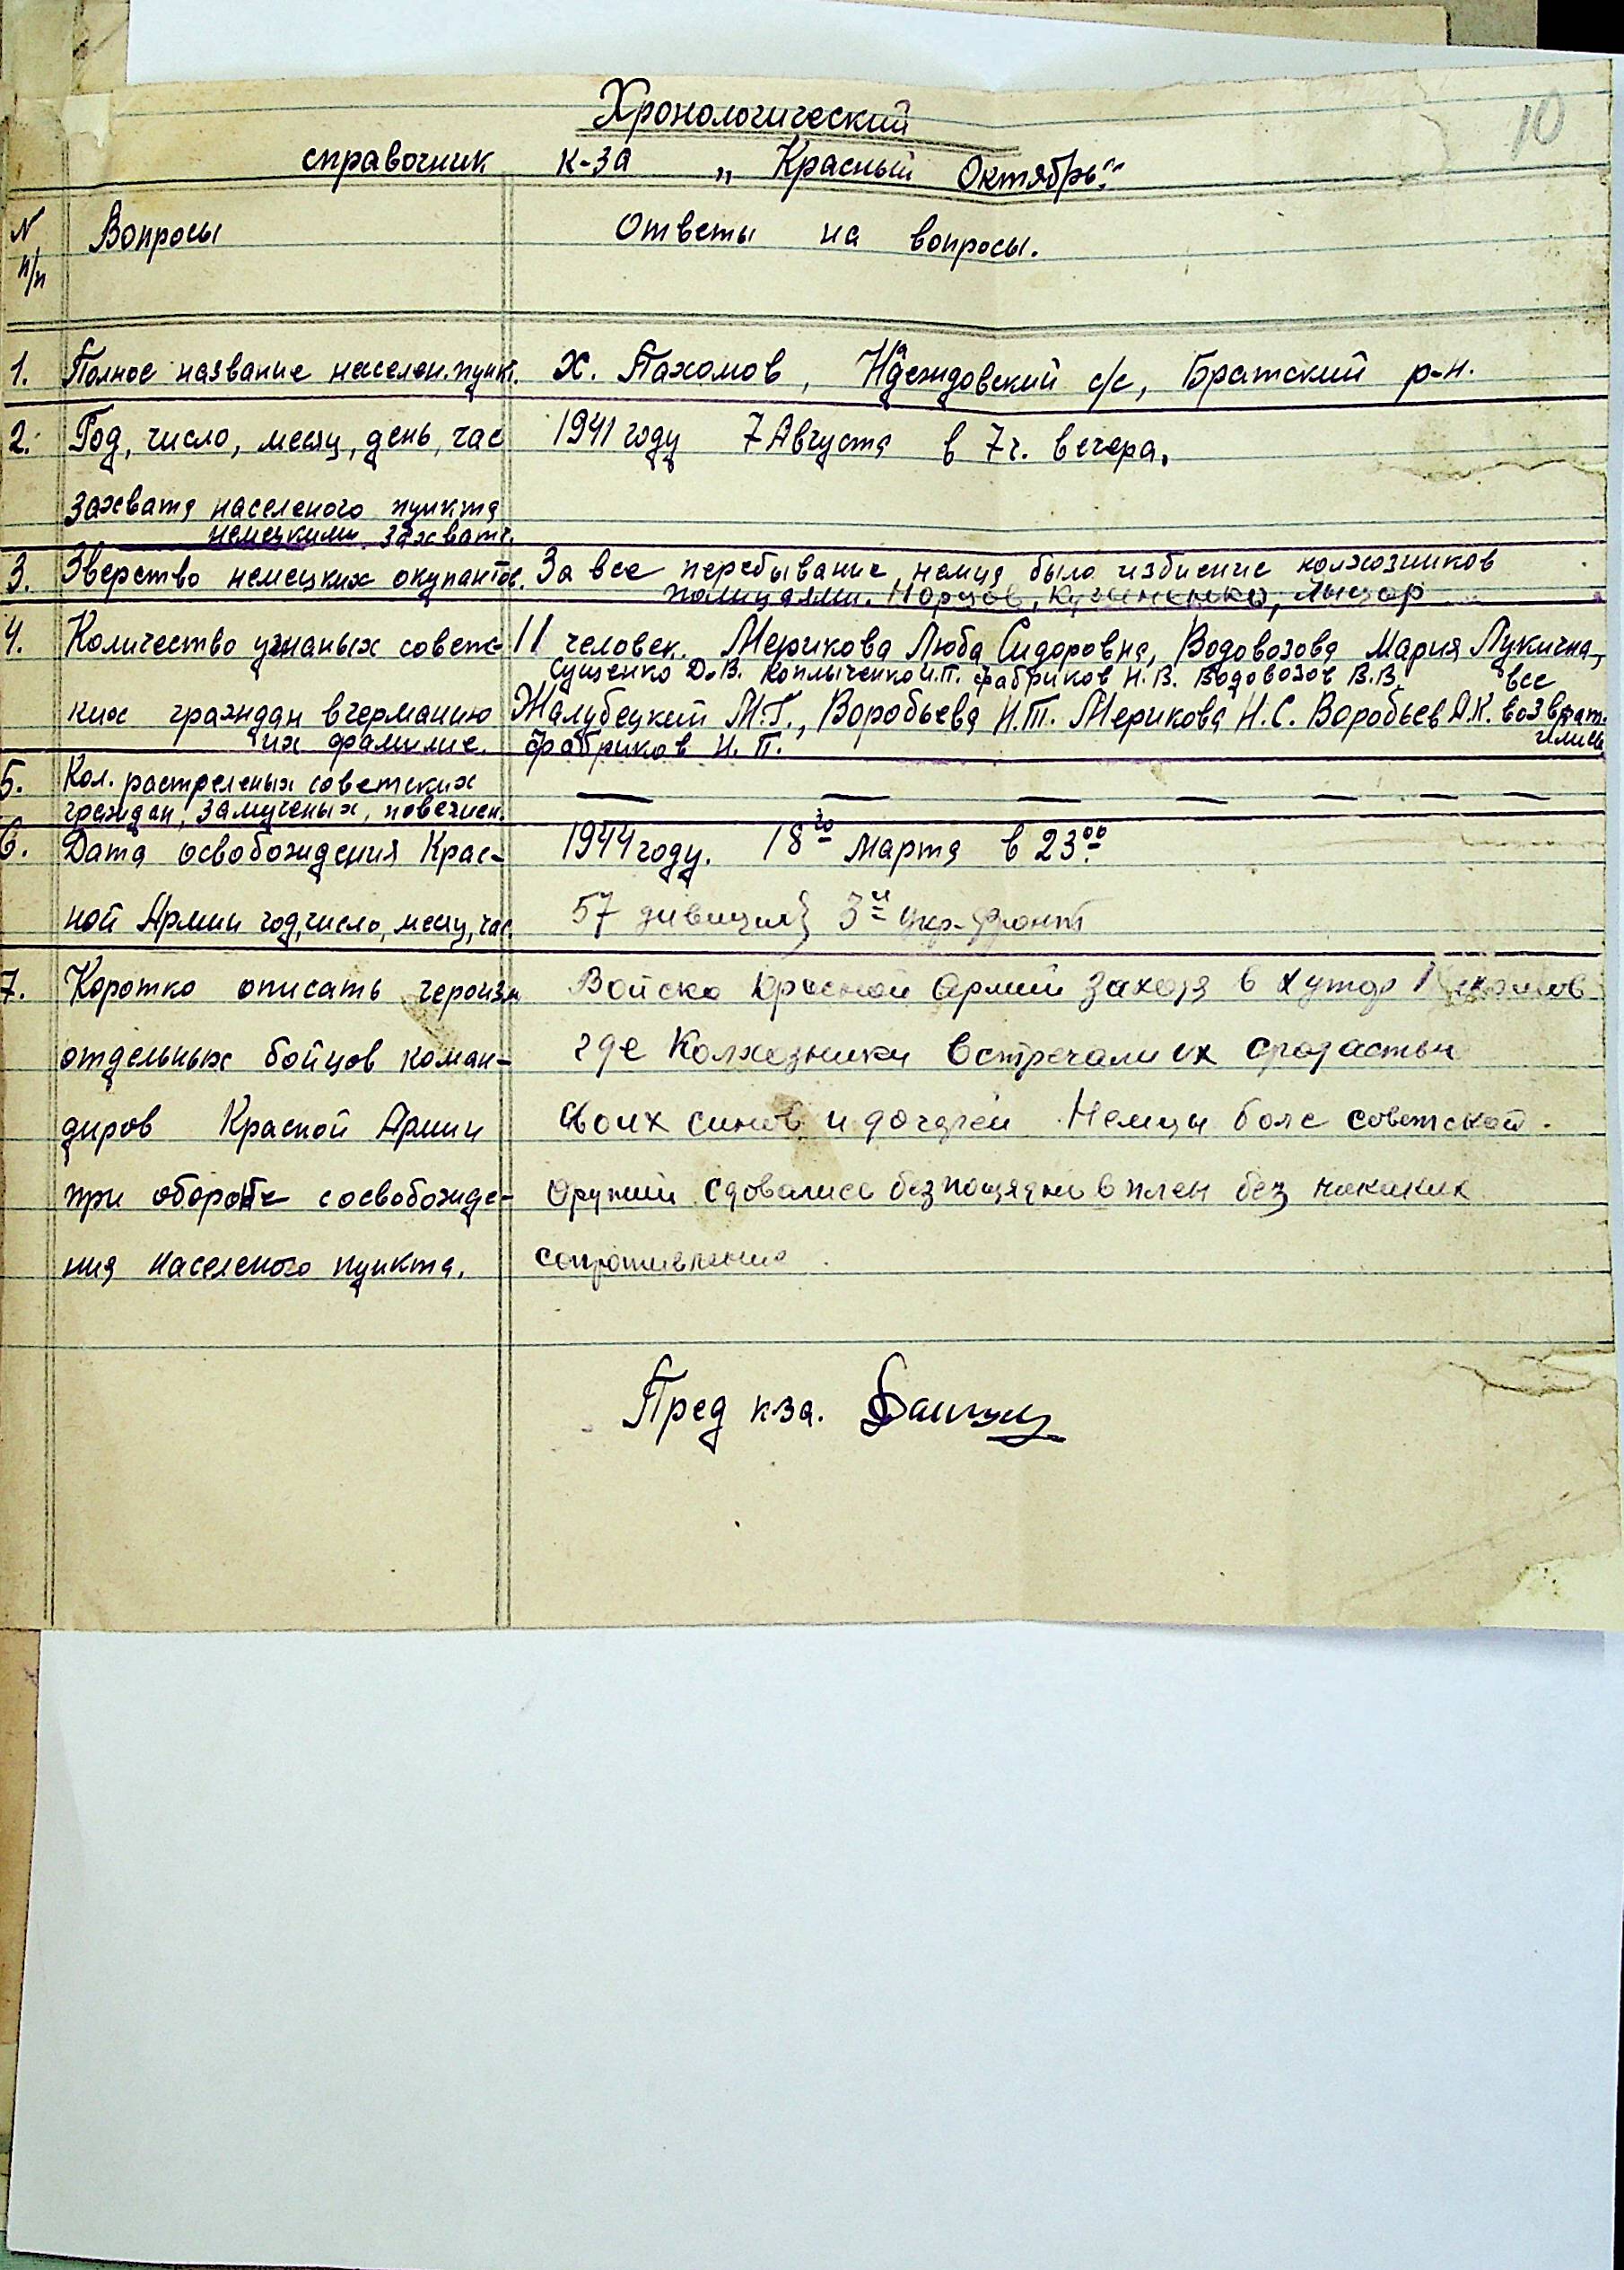 10
Хронологический
справочник к-за „Красный Октябрь"
N п/п Вопросы Ответы на вопросы.
1. Полное название населен. пункт. Х. Пахомов, Надеждовский с/с, Братский р-н.
2. Год, число, месяц, день, час 1941 году 7 Августа в 7 ч. вечера.
захвата населеного пункта
немецкими захватч.
3. Зверство немецких окупантов. За все перебывание немца было избиение колхозников
полицаями.
4. Количество угнаных советс- 11 человек. Мерикова Люба Сидоровна, Водовозова Мария Лукична,
Сущенко Д.В. Коплыченко И.П. Фабриков Н.В. Водовозов В.В. все
ких граждан в германию Жалубецкий М.Г., Воробьева Н.Т. Мерикова Н.С. Воробьев А.К. возврат-
их фамилие. Фабриков Н.П. ились
5. Кол. растреленых советских — — — — — — —
граждан, замученых, повешен.
6. Дата освобождения Крас- 1944 году. 18го марта в 2300
ной Армии год, число, месяц, час. 57 дивизия 3й укр-фронт
7. Коротко описать героизм Войско Красной Армии заходя в хутор Пахомов
отдельных бойцов коман- где Колхозники встречали их
диров Красной Армии своих синов и дочерей Немцы советской
при обороне с освобожде- Оружии сдовались безпощядно в плен без никаких
ния населеного пункта. сопротивление
Пред к-за.